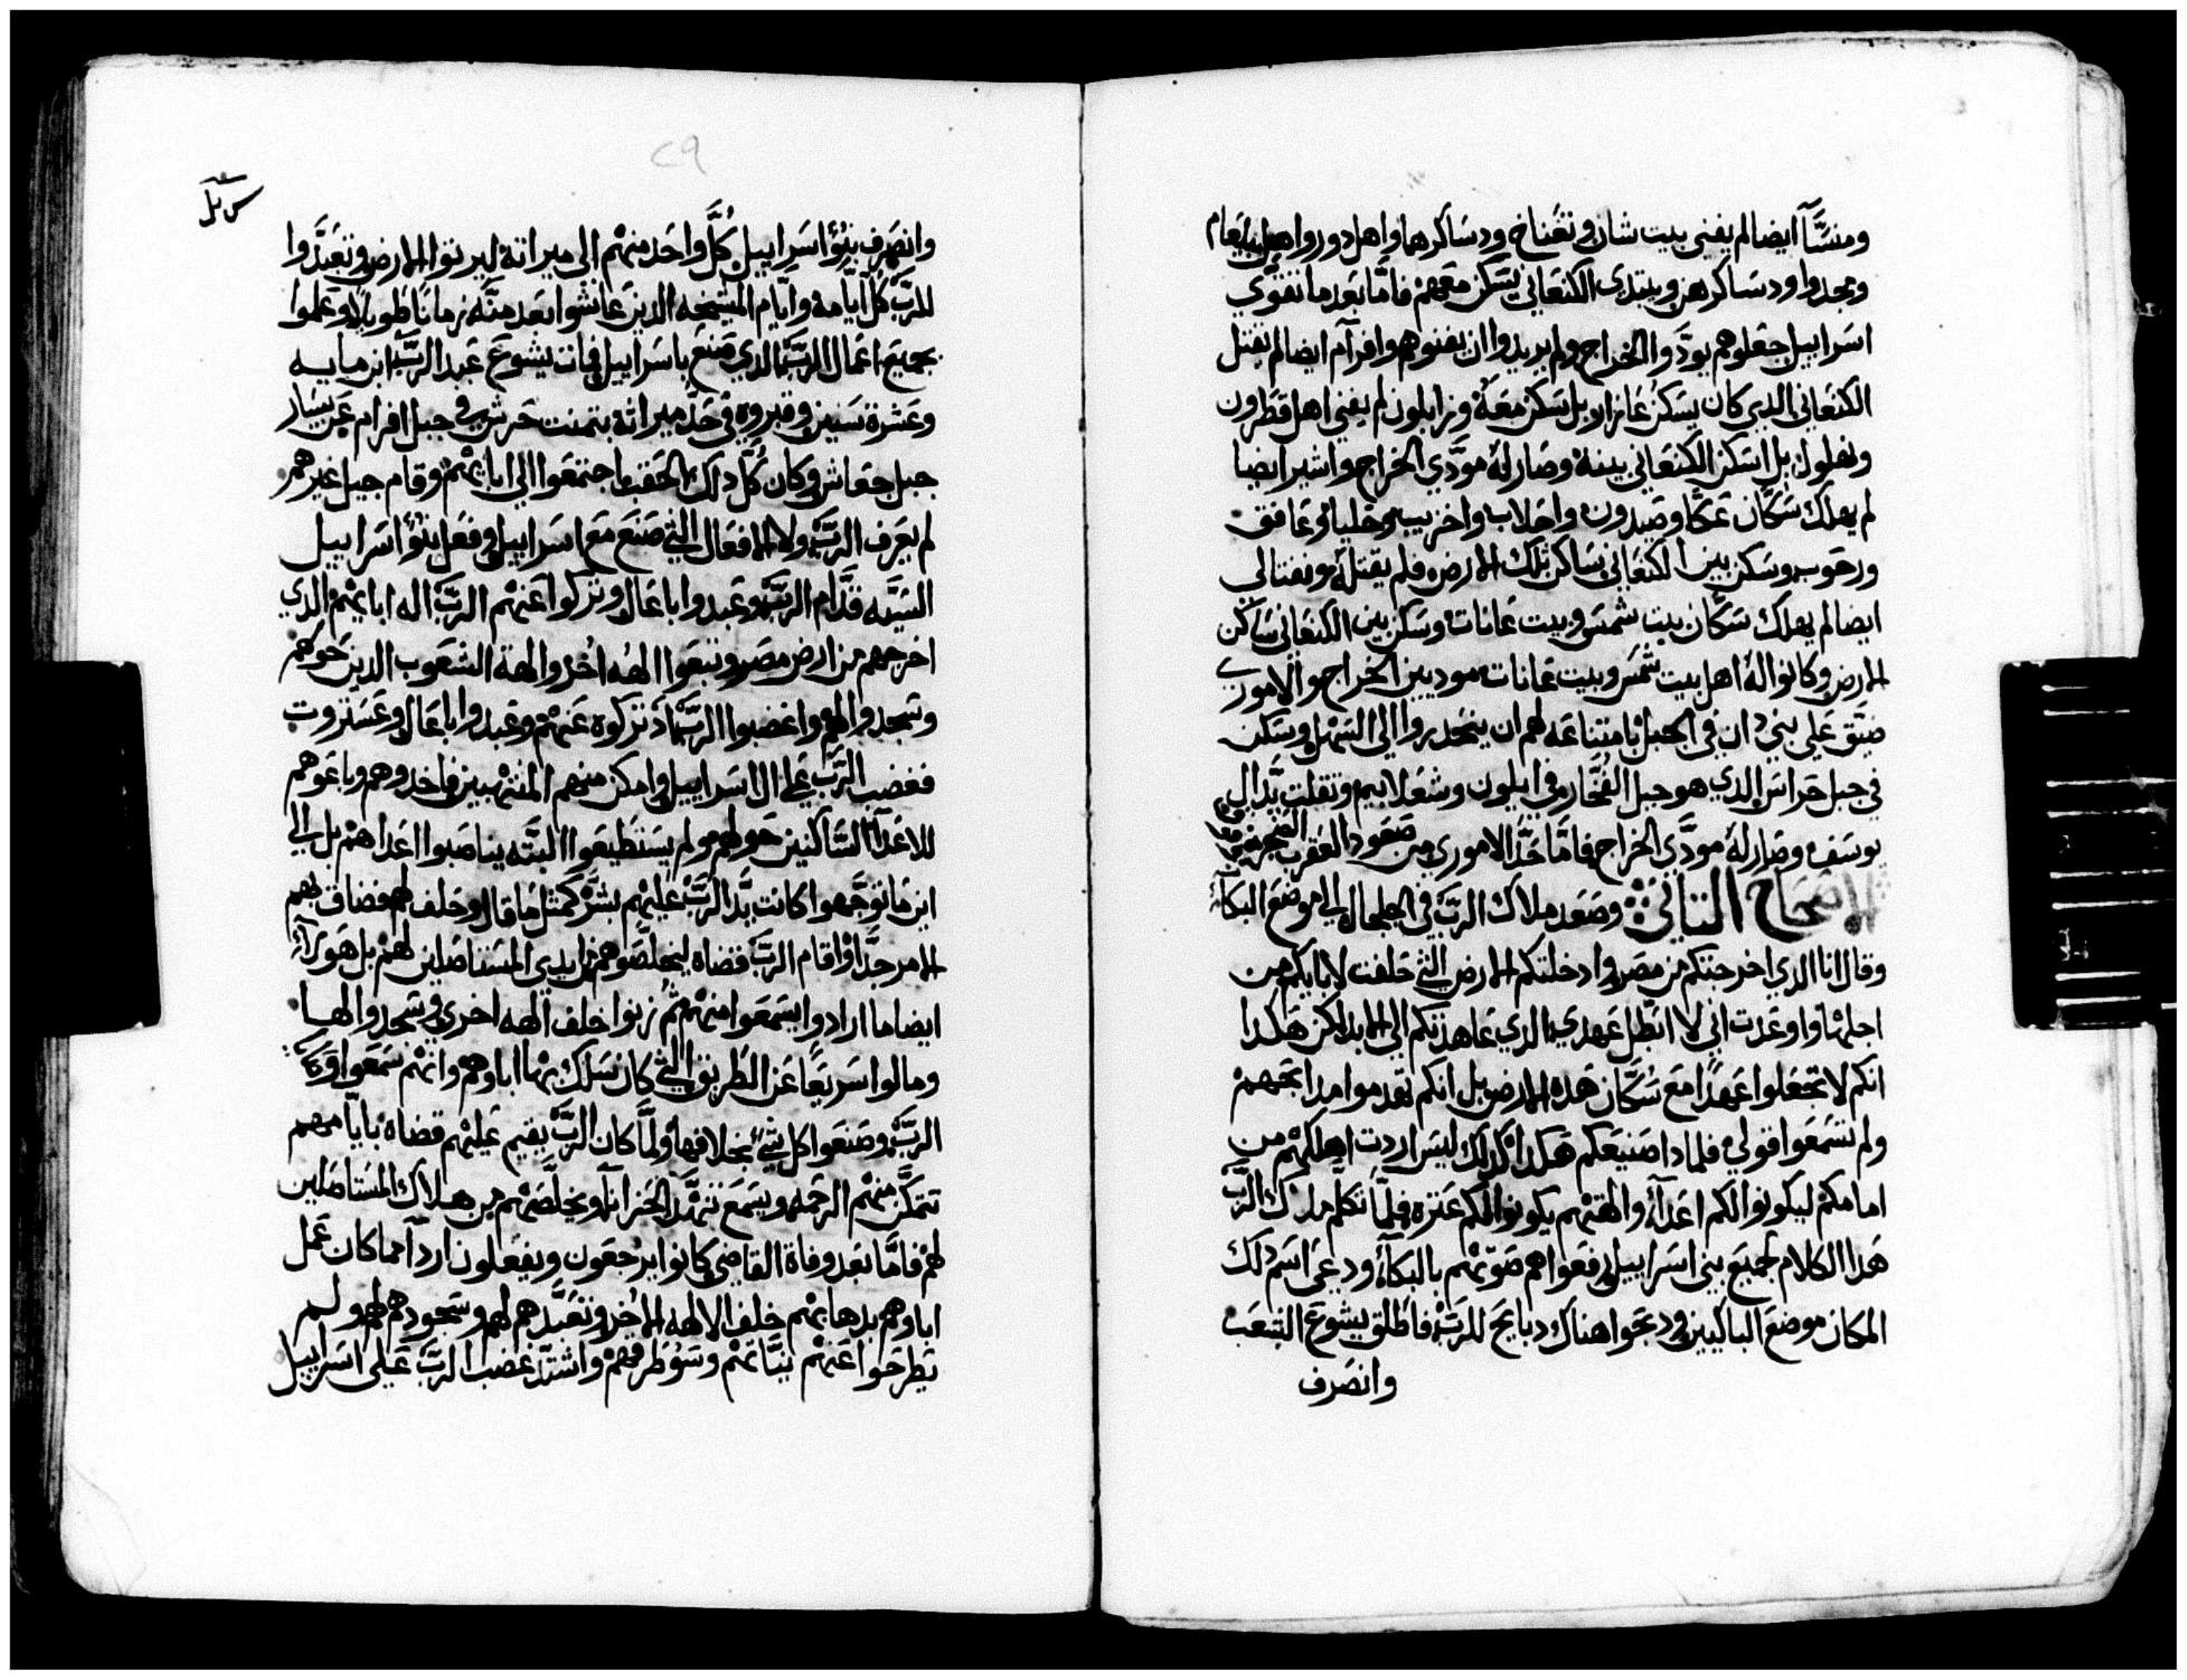 ومنسَّآ ايضا لم يفني بيت شان وتعناخ ودساكرهما واهل دور واهل يبلعام
ومجدوا ودساكرهن ويبتدى الكنعاني يسكن معهم فامَّا بعد ما تقوَّي
اسراييل جعلوهم يودَّوا الخراج ولم يريدوا ان يفنوهم وافرآم ايضا لم يقتل
الكنعاني الدي كان يسكن غازار بل سكن معهُ وزابلون لم يفني اهل قطرون
ونهلول بل اسكن الكنعاني بينه وصار لهُ مودَّي الخراج واشير ايضا
لم يهلك سكَّان عكَّا وصيدون واحلاب واخزيب وحلبا وعافق
ورحوب وسكن بين الكنعاني ساكن تلك الارض فلم يقتلهُ ونفتالي
ايضا لم يهلك سكَّان بيت شمس وبيت عانات وسكن بين الكنعاني ساكن
الارض وكانوا لهُ اهل بيت شمس وبيت عانات موديين الخراج والاموري
ضيَّق علي بني دان في الجبل بامتناعه لهم ان ينحدروا الي السهل وسكن
في جبل حراس الدي هو جبل الفُخَّار وفي ايلون وشعلابيم وتقلت يَدّ ال
يوسف وصار لهُ مودَّي الخراج فامَّا حَدَّ الاموري من صعود العقرب الصخره
الاصحاح التاني وصعد ملاك الربَّ في الجلجال الي موضع البكآء
وقال انا الدي اخرجتكم من مصر وادخلتكم الارض التي حلفت لابايكم من
اجلها واوعدت اني لا ابطل عهدي الدي عاهدتكم الي الابد لكن هكدا
انكم لا تجعلوا عهدًا مع سُكَّان هده الارض بل انكم تهدموا مدابحهم
ولم تسمعوا قولي فلمادا صنيعكم هكدا لدلك ليس اردت اهلكهم من
امامكم ليكونوا لكم اعدآء والهتهم يكونوا لكم عتره فلمَّا تكلَّم ملاك الربَّ
هدا الكلام لجميع بني اسراييل رفعوا هم صوتهم بالبكآء ودعي اسم دلك
المكان موضع الباكيين ودبحوا هناك دبايح للربَّ فاطلق يشوع الشعب
وانصرف
٢٩
وانصرف بنُوا اسراييل كلَّ واحد منهم الي ميراته ليرتوا الارض وتعبَّدوا
للربَّ كلَّ ايَّامه وايَّام المشيخه الدين عاشوا بعد منَّه زمانا طويلا وعلموا
بجميع اعمال الربَّ الدي صنع باسراييل فمات يشوع عبد الربَّ ابن مايه
وعشرة سنين وقبروه في حَدَّ ميراته بتمنت حرش في جبل افرام عن يسار
جبل جعاش وكان كُلَّ دلك الحقب اجتمعوا الي ابايهم وقام جيل غيرهم
لم يعرف الربَّ ولا الافعال التي صنع مع اسراييل وفعل بنُوا اسراييل
السيَّه قدَّام الربَّ وعبدوا باعال وتركوا عنهم الربَّ اله ابايهم الدي
اخرجهم من ارض مصر وتبعوا الهه اخر والهة الشعوب الدين حولهم
وسجدوا لهم واغضبوا الربَّ اد تركوه عنهم وعبدوا باعال وعستروت
فغضب الربَّ علي ال اسراييل وامكن منهم المنتهبين فاخدوهم وباعوهم
للاعدآ السَّاكنين حولهم ولم يستطيعوا البته يناصبوا اعداهم بل الي
اين ما توجَّهوا كانت يَدّ الربَّ عليهم بشرَّ كمتل ما قال وحلف لهم فضاق بهم
الامر جدًّا واقام الربَّ قضاه ليخلصوهم من ايدي المستاصلين لهم بل هولآء
ايضا ما ارادوا يسمعوا منهم ثم زنوا خلف الهه اخري وسجدوا لها
ومالوا سريعًا عن الطريق التي كان سلك بها اباوهم وانهم سمعوا وصايا
الربَّ وصنعوا كل شيَ بخلافها ولمَّا كان الربَّ يقيم عليهم قضاه بايَّامهم
تتمكَّن منهم الرحمه ويسمع تنهَّد الحزانآ ويخلَّصهم من هلاك المستاصلين
لهم فامَّا بعد وفاة القاضي كانوا يرجعون ويفعلون ارداَ مما كان عمل
اباوهم بدهابهم خلف الالهه الاُخر وتعبَّدهم لهم وسجودهم لهم ولم
يطرحوا عنهم نيَّاتهم وسُوُ طرقهم واشتدَّ غضب الربَّ علي اسراييل